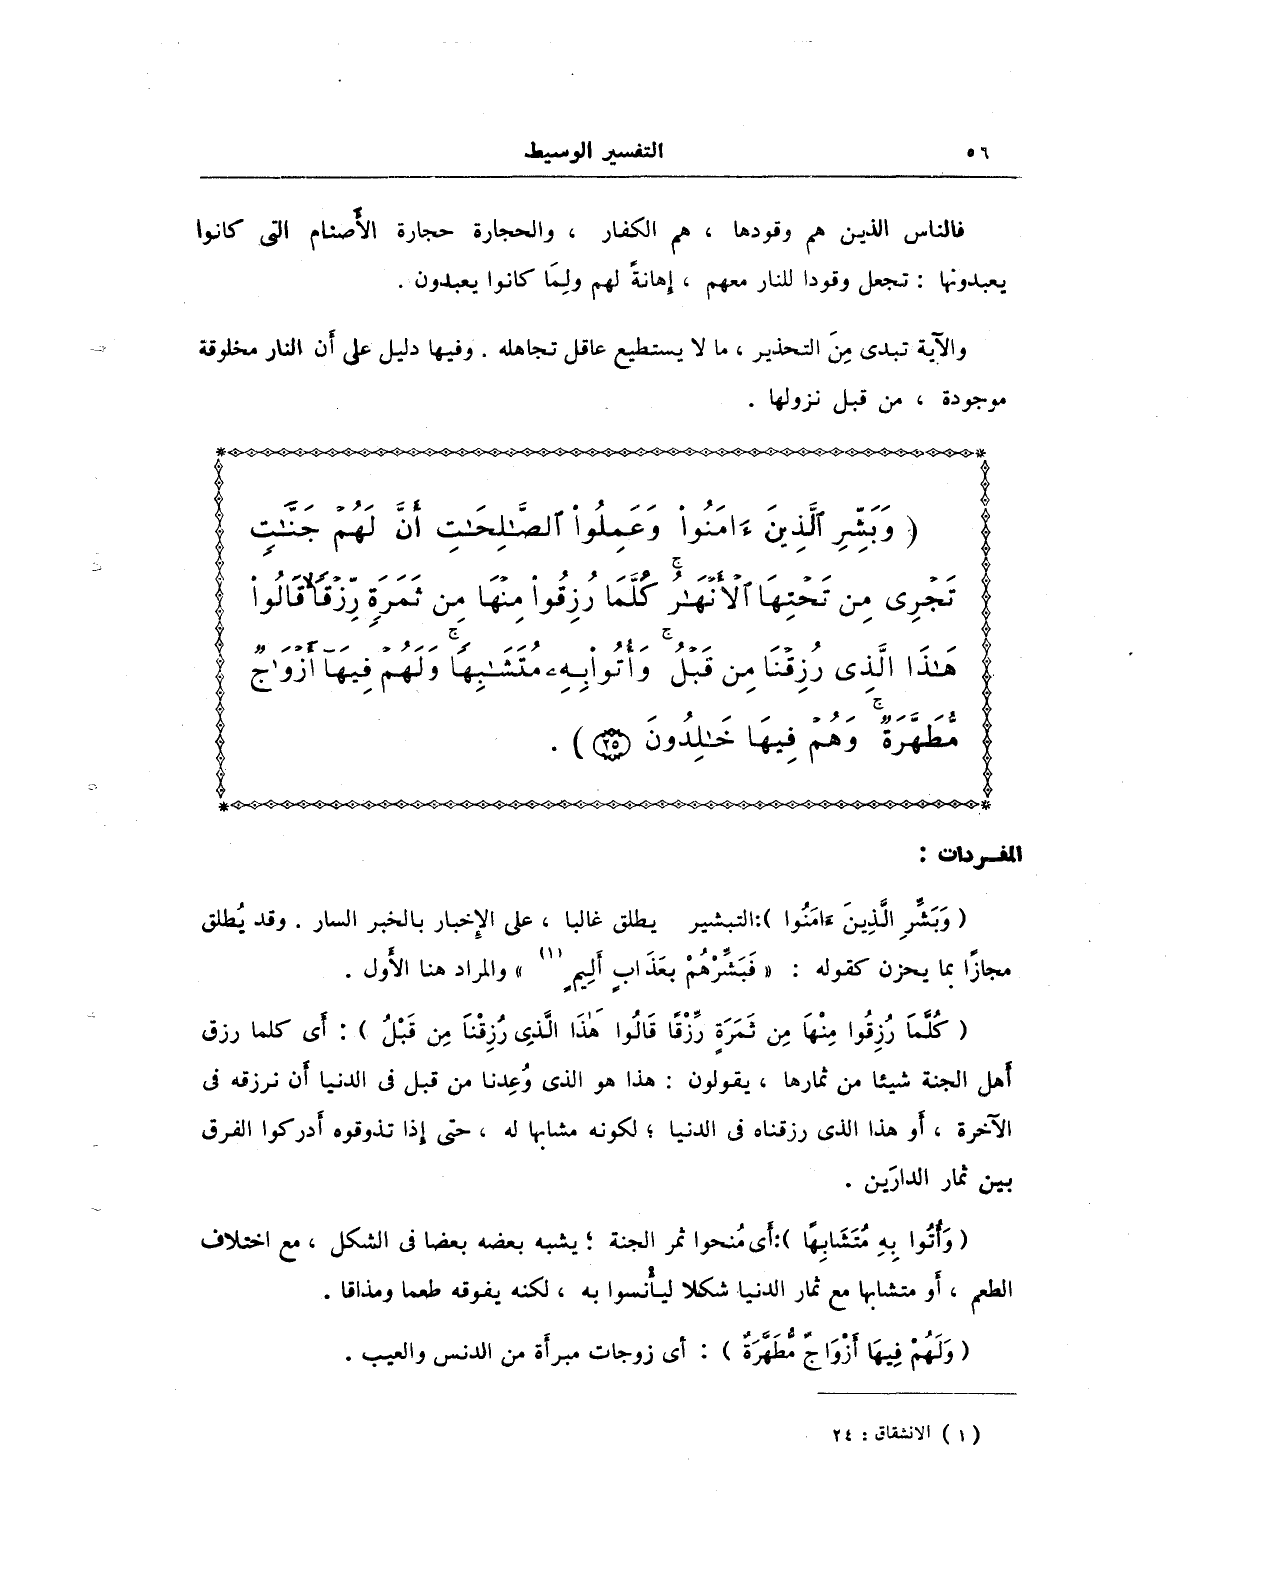 ٥٦ التفسير الوسيط
فالناس الذين هم وقودها ، هم الكفار ، والحجارة حجارة الأَصنام التى كانوا
يعبدونها : تجعل وقودا للنار معهم ، إهانةً لهم ولِمَا كانوا يعبدون .
والآية تبدى مِنَ التحذير ، ما لا يستطيع عاقل تجاهله . وفيها دليل على أَن النار مخلوقة
موجودة ، من قبل نزولها .
( وَبَشِّرِ ٱلَّذِينَ ءَامَنُوا۟ وَعَمِلُوا۟ ٱلصَّـٰلِحَـٰتِ أَنَّ لَهُمْ جَنَّـٰتٍ
تَجْرِى مِن تَحْتِهَا ٱلْأَنْهَـٰرُ ۖ كُلَّمَا رُزِقُوا۟ مِنْهَا مِن ثَمَرَةٍ رِّزْقًا ۙ قَالُوا۟
هَـٰذَا ٱلَّذِى رُزِقْنَا مِن قَبْلُ ۖ وَأُتُوا۟ بِهِۦ مُتَشَـٰبِهًا ۖ وَلَهُمْ فِيهَآ أَزْوَٰجٌ
مُّطَهَّرَةٌ ۖ وَهُمْ فِيهَا خَـٰلِدُونَ ﴿٢٥﴾ ) .
المفردات :
( وَبَشِّرِ الَّذِينَ ءَامَنُوا ):التبشير يطلق غالبا ، على الإِخبار بالخبر السار . وقد يُطلق
مجازًا بما يحزن كقوله : « فَبَشِّرْهُمْ بِعَذَابٍ أَلِيمٍ (١) » والمراد هنا الأَول .
( كُلَّمَا رُزِقُوا مِنْهَا مِن ثَمَرَةٍ رِّزْقًا قَالُوا هَٰذَا الَّذِى رُزِقْنَا مِن قَبْلُ ) : أَى كلما رزق
أَهل الجنة شيئا من ثمارها ، يقولون : هذا هو الذى وُعِدنا من قبل فى الدنيا أَن نرزقه فى
الآخرة ، أَو هذا الذى رزقناه فى الدنيا ؛ لكونه مشابها له ، حتى إذا تذوقوه أَدركوا الفرق
بين ثمار الدارَين .
( وَأُتُوا بِهِ مُتَشَابِهًا ):أَى مُنحوا ثمر الجنة ؛ يشبه بعضه بعضا فى الشكل ، مع اختلاف
الطعم ، أَو متشابها مع ثمار الدنيا شكلا ليأْنسوا به ، لكنه يفوقه طعما ومذاقا .
( وَلَهُمْ فِيهَا أَزْوَاجٌ مُّطَهَّرَةٌ ) : أى زوجات مبرأة من الدنس والعيب .
( ١ ) الانشقاق : ٢٤